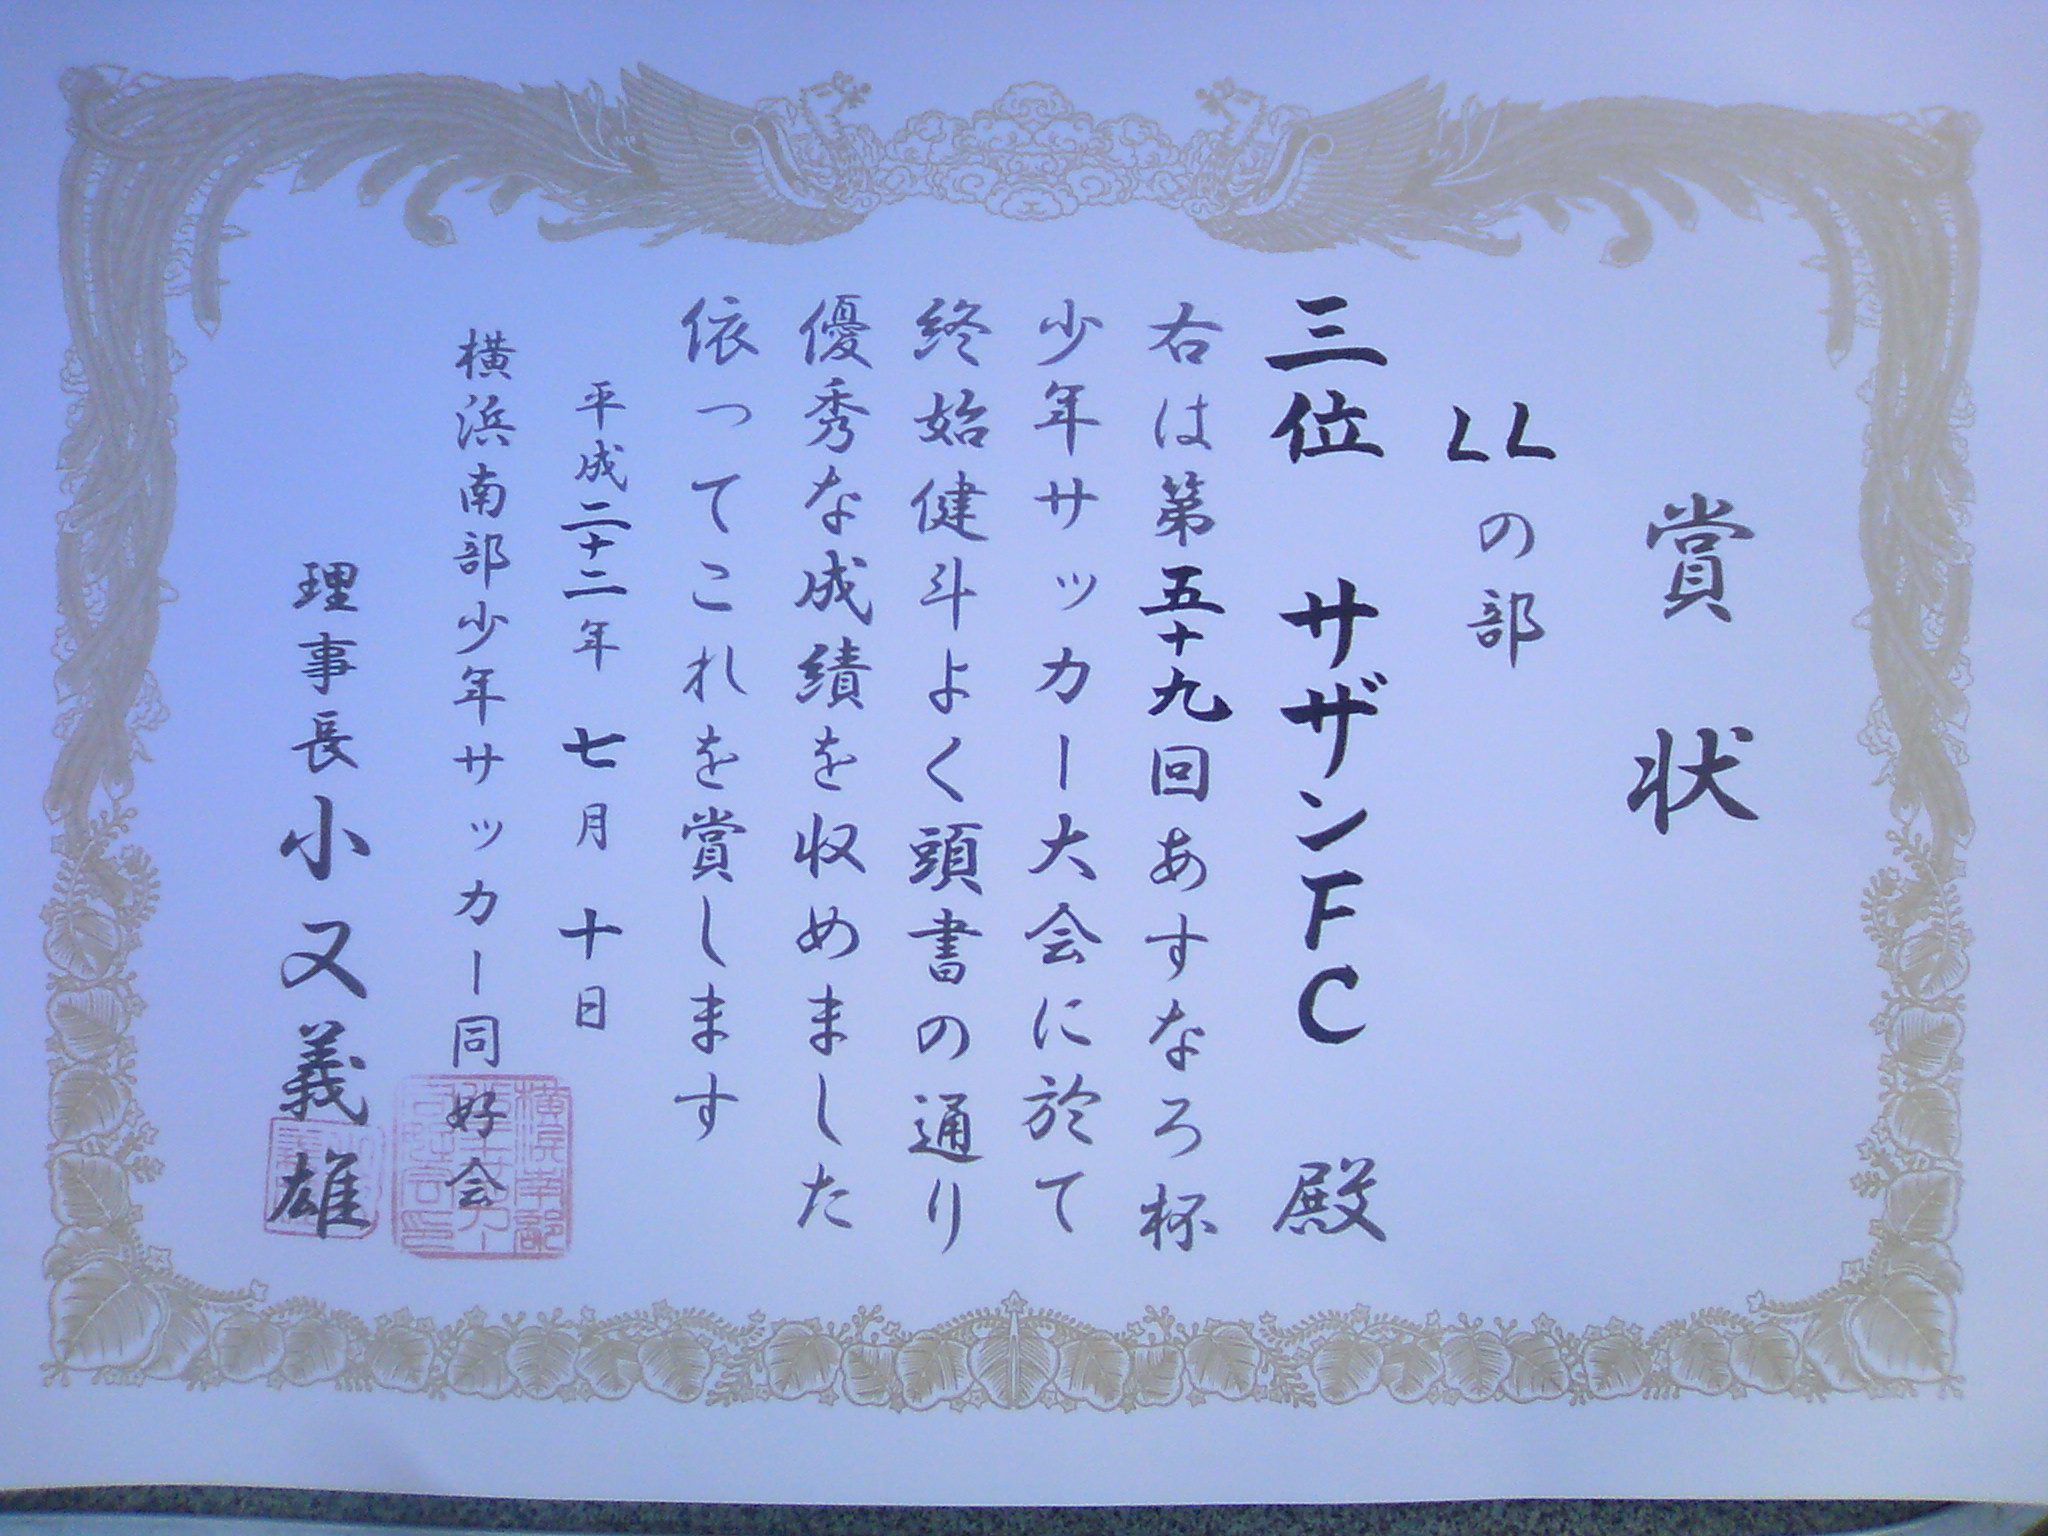 賞状
LLの部
三位 サザンFC 殿
右は第五十九回あすなろ杯
少年サッカー大会に於て
終始健斗よく頭書の通り
優秀な成績を収めました
依ってこれを賞します
平成二十二年 七月 十日
横浜南部少年サッカー同好会
理事長 小又義雄